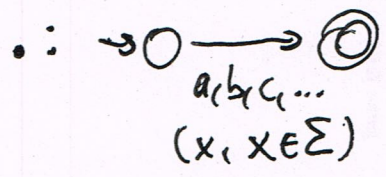 . :
a, b, c, ...
(x, x ∈ Σ)